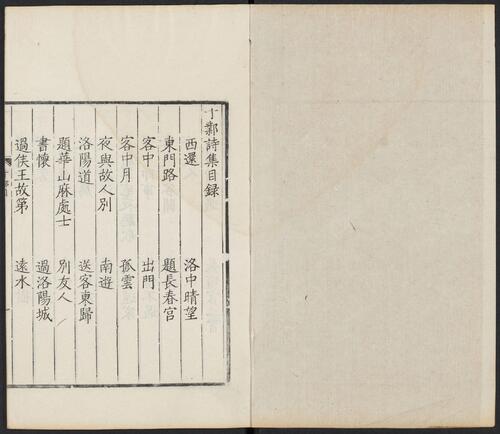 于鄴詩集目録
西還　洛中晴望
東門路　題長春宮
客中　出門
客中月　孤雲
夜與故人別　南遊
洛陽道　送客東歸
題華山麻處士　別友人
書懷　過洛陽城
過侯王故第　遠水